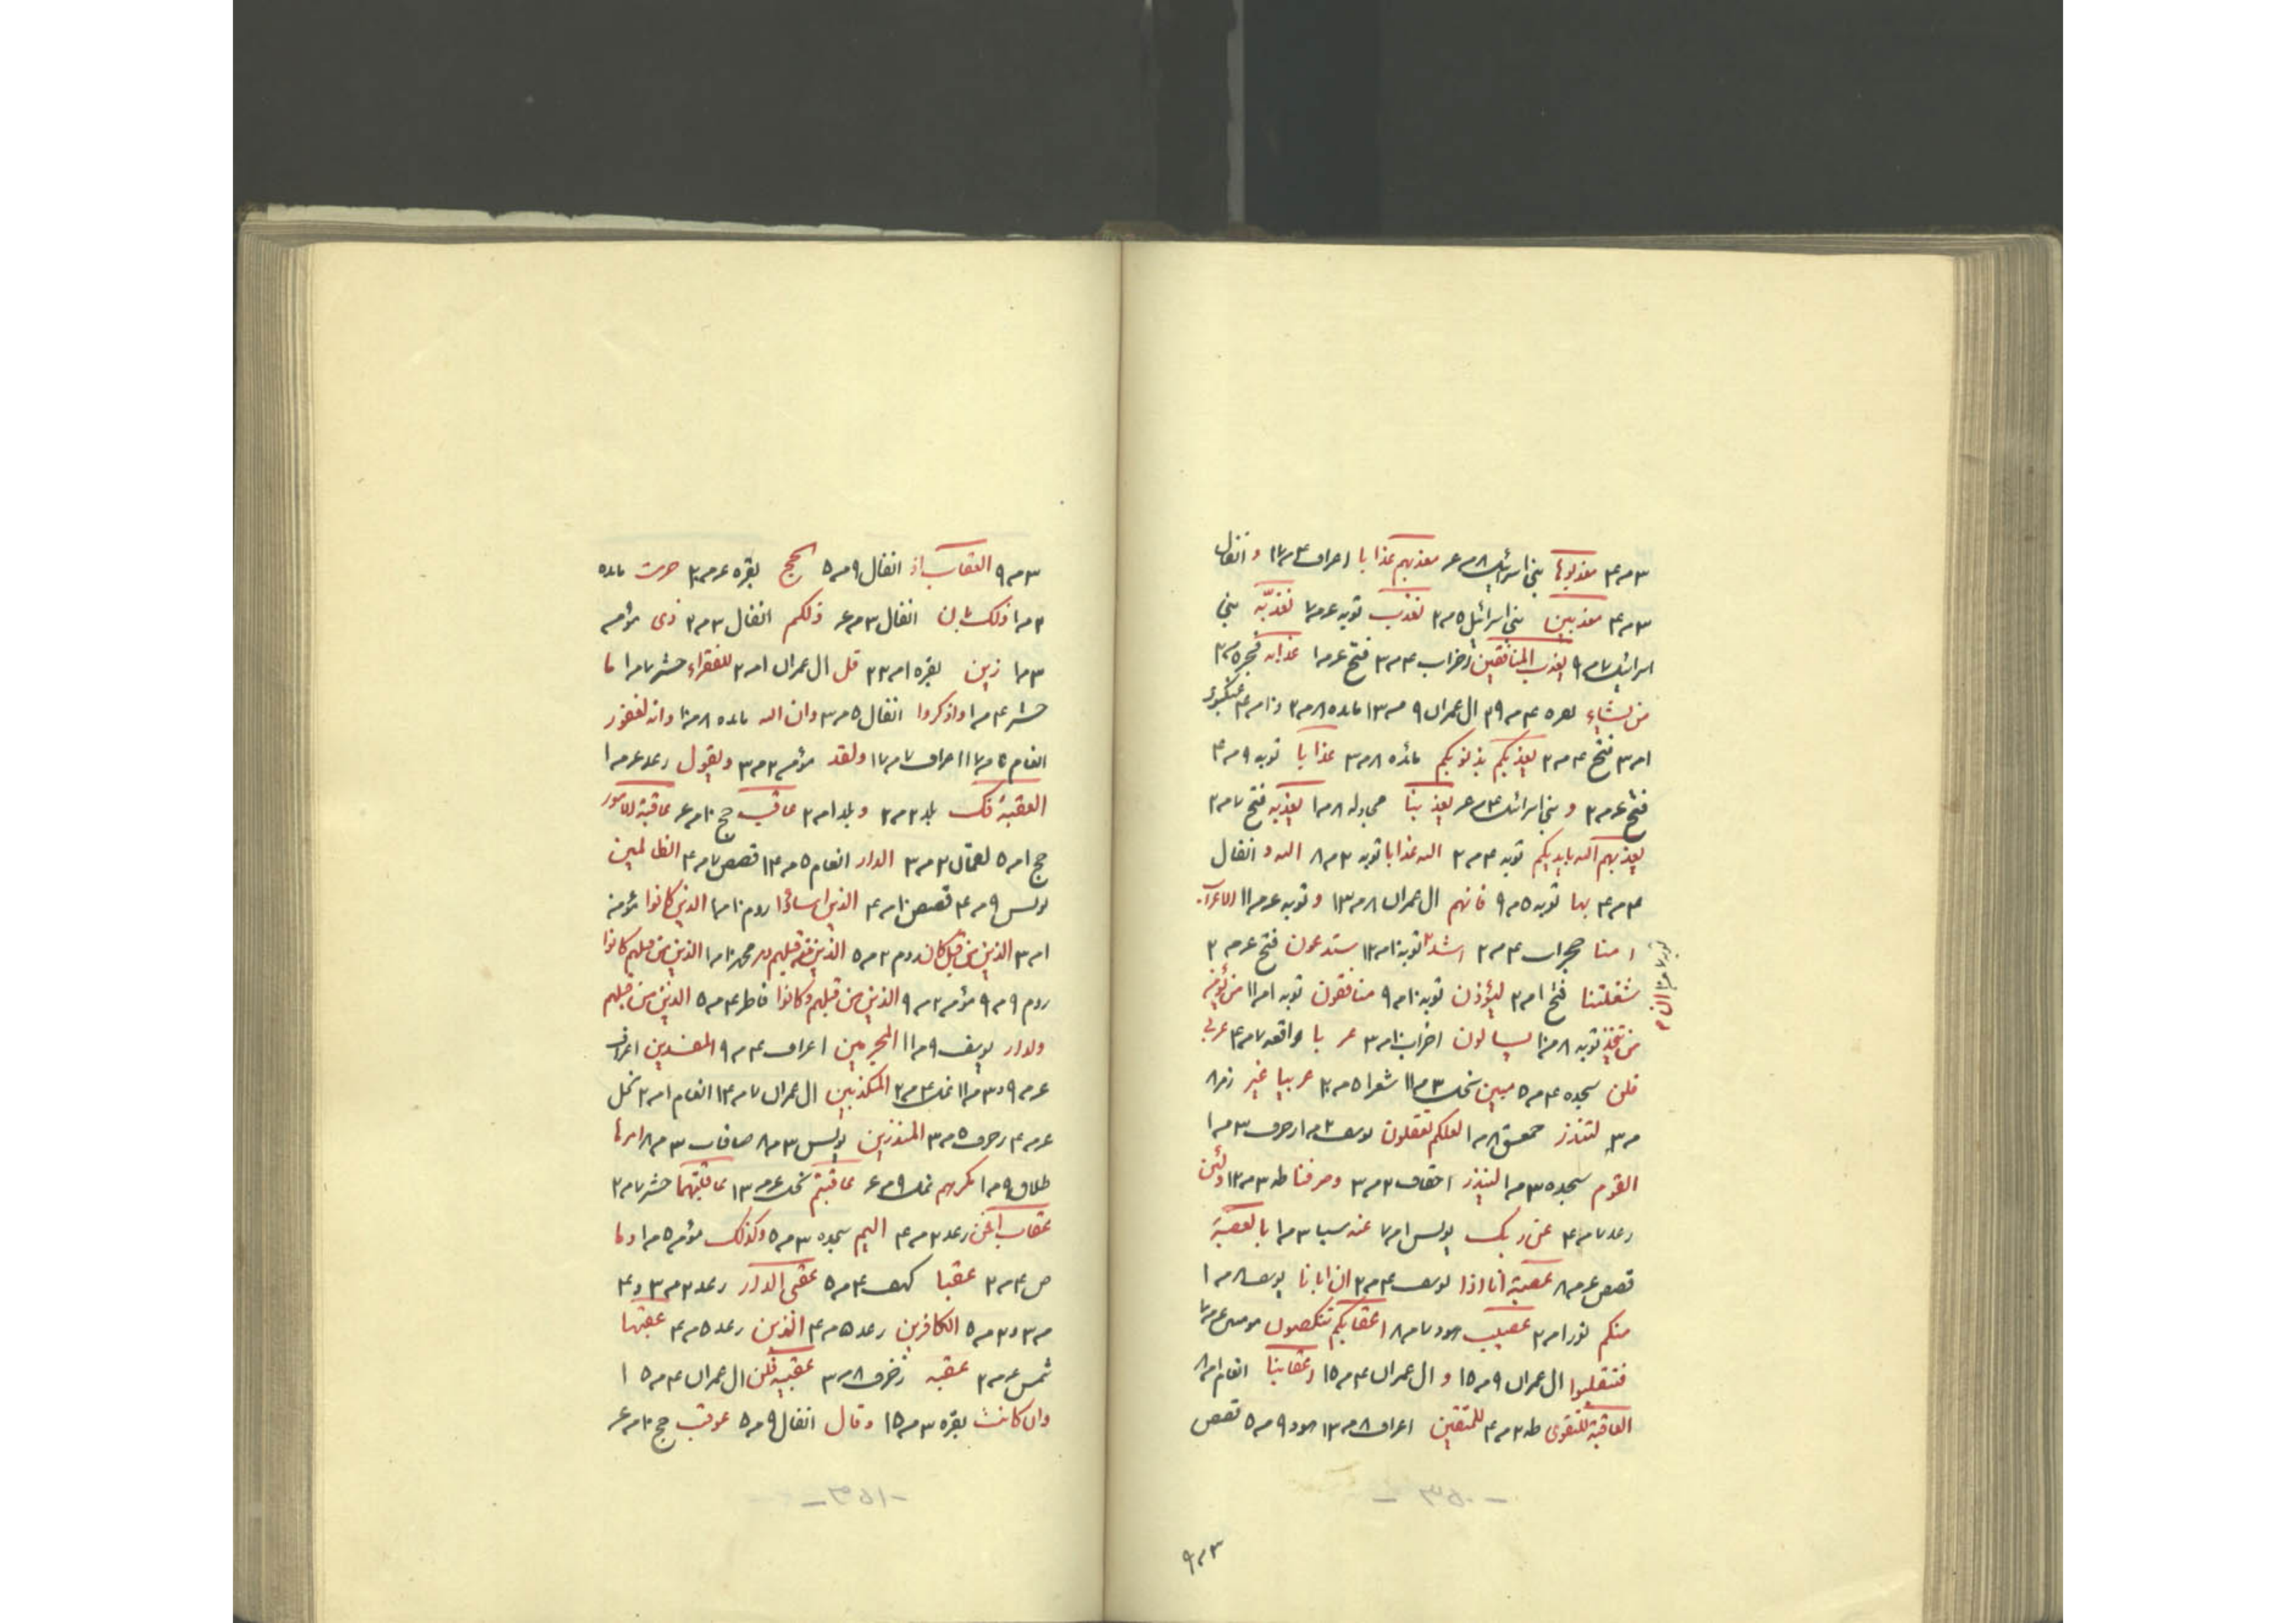 ٣ م ٣ معذبوها بنی اسرائیل ٨ م ع معذبهم عذابا اعراف ٣ م ١٧ و انفال
٣ م ٣ معذبین بنی اسرائیل ٥ م ٢ نعذب توبه ع م ٧ نعذبه بنی
اسرائیل ٧ م ٩ یعذب المنافقین احزاب ٣ م ٣ فتح ع م ١ عذابه فجر ٥ م ٣
من یشاء ال عمران ٩ م ١٣ مائده ٨ م ٢ عنکبوت
١ م ٣ فتح ٣ م ٢ یعذبکم بذنوبکم مائده ٨ م ٣ عذابا توبه ٩ م ٣
فتح ع م ٢ و بنی اسرائیل ٣ م ع یعذبنا مجادله ٨ م ١ یعذبه فتح ٧ م ٢
یعذبهم الله بایدیکم توبه ٣ م ٢ الله عذابا توبه ٣ م ٨ الله و انفال
٣ م ٣ بها توبه ٥ م ٩ فانهم ال عمران ٨ م ١٣ و توبه ع م ١١ الاعراب
امنا حجرات ٣ م ٢ اشد توبه ١٠ م ١٢ ستدعون فتح ع م ٢
شغلتنا فتح ١ م ٢ لیؤذن توبه ١٠ م ٩ منافقون توبه ١ م ١١ من یؤمن
من یتخذ توبه ٨ م ١٠ یسالون احزاب ١٠ م ٣ عربا واقعه ٧ م ٣ عربی
قلن سجده ٣ م ٥ مبین نحل ٣ م ١١ شعرا ٥ م ٢٠ عربیا غیر زمر ٨
م ٣ لتنذر حمعسق ٨ م ١ لعلکم تعقلون یوسف ٢ م ١ زخرف ٣ م ١
القوم سجده ٣ م ١ لینذر احقاف ٢ م ٣ و صرفنا طه ٣ م ١٢ ولئن
رعد ٧ م ٣ عن ربک یونس ١ م ٧ عنه سبا ٣ م ١ بالعصبة
قصص ع م ٨ عصبة انا اذا یوسف ٣ م ٢ ان ابانا یوسف ٨ م ١
منکم نور ١ م ٢ عصیب هود ٧ م ٨ اعقابکم تنکصون مومنین ع م ٧
فتنقلبوا ال عمران ٩ م ١٥ و ال عمران ٣ م ١٥ اعقابنا انعام ١ م ٨
العاقبة للتقوی طه ٢ م ٣ للمتقین اعراف ٨ م ١٣ هود ٩ م ٥ قصص
- ٣٥٠ -
٣ م ٩
٣ م ٩ العقاب اذ انفال ٩ م ٥ الحج بقره ع م ٣ حرمت مائده
٢ م ١ ذلک بان انفال ٣ م ع ذلکم انفال ٣ م ٢ ذی مؤمن
٣ م ١ زین بقره ١ م ٢٢ قل ال عمران ١ م ٢ للفقراء حشر ٧ م ١ ما
حشر ٣ م ١ واذکروا انفال ٥ م ٣ وان الله مائده ٨ م ١٠ وانه لغفور
انعام ٥ م ١٧ اعراف ٧ م ١٧ ولقد مؤمن ٢ م ٣ ویقول رعد ع م ١
العقبة فک بلد ٢ م ٢ و بلد ١ م ٢ عاقب حج ١٠ م ع عاقبة الامور
حج ١ م ٥ لقمان ٢ م ٣ الدار انعام ٥ م ١٣ قصص ٧ م ٣ الظالمین
یونس ٩ م ٣ قصص ١٠ م ٣ الذین اساؤا روم ١٠ م ١ الذین کانوا مؤمن
١ م ٣ الذین من قبل کان روم ٢ م ٥ الذین من قبلهم دمر محمد ١٠ م ١ الذین من قبلهم کانوا
روم ٩ م ٩ مؤمن ٢ م ٩ الذین من قبلهم وکانوا فاطر ٣ م ٥ الذین من قبلهم
ولدار یوسف ٩ م ١١ المجرمین اعراف ٣ م ٩ المفسدین اعراف
ع م ٩ و ٣ م ١١ نمل ٣ م ٢ المکذبین ال عمران ٧ م ١٣ انعام ١ م ٢ نحل
ع م ٣ زخرف ٥ م ٣ المنذرین یونس ٣ م ٨ صافات ٣ م ٨ امرها
طلاق ٩ م ١ مکرهم نمل ٩ م ع عاقبتم نحل ع م ١٣ عاقبتهما حشر ٧ م ٢
عقاب افمن رعد ٢ م ٣ الیم سجده ٣ م ٥ وکذلک مؤمن ٥ م ١ وما
ص ٣ م ٢ عقبا کهف ٣ م ٥ عقبی الدار رعد ٢ م ٣ و ٣
م ٣ و ٣ م ٥ الکافرین رعد ٥ م ٣ الذین رعد ٥ م ٣ عقبها
شمس ع م ٢ عقبه زخرف ٨ م ٣ عقبیه فلن ال عمران ٣ م ١٥
وان کانت بقره ٣ م ١٥ وقال انفال ٩ م ٥ عوقب حج ١٠ م ع
- ٣٥١ -